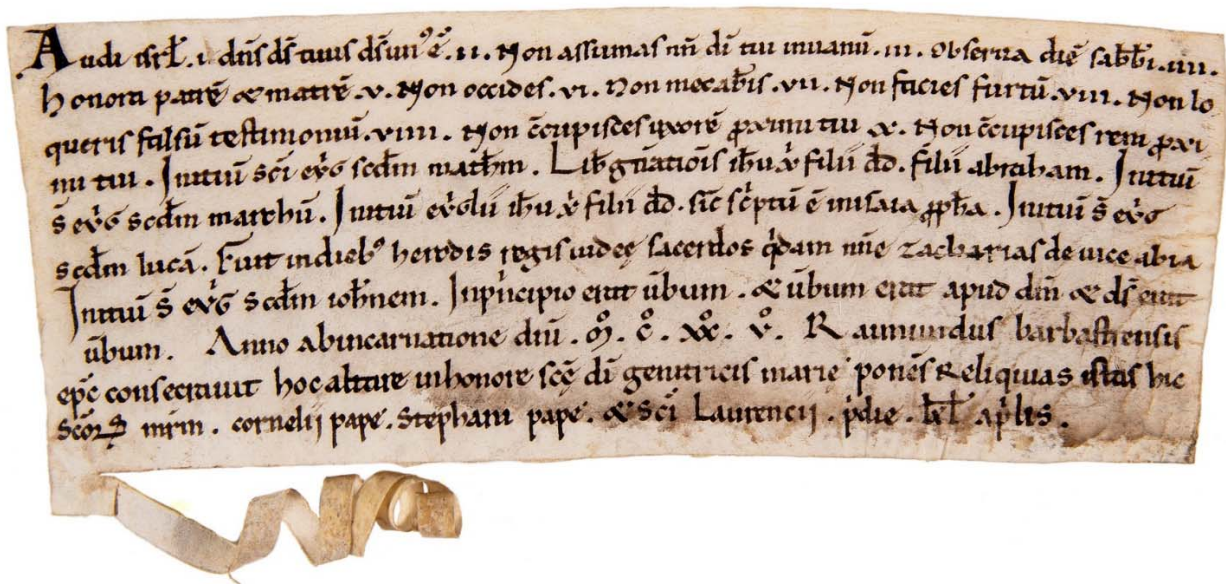 Audi isrł. i. dn̄s ds̄ tuus ds̄ un᾽ ē. ii. Non assumas nn̄ dī tui inuanū. iii. Obserua diē sabb̄i. iiii.
honora patrē & matrē. v. Non occides. vi. Non mecab̄is. vii. Non facies furtū. viii. Non lo
queris falsū testimoniū. viiii. Non c̄cupisces uxorē ꝓximi tui x. Non c̄cupisces rem ꝓxi
mi tui. Initiū sc̄i ev̄g scd̄m math̄m. Lib̄ gn̄atiōis ih̄u xp̄ filii d̄d. filii abraham. Initiū
s̄ ev̄g scd̄m marchū. Initiū ev̄glii ih̄u xp̄ filii d̄d. sic̄ sc̄ptū ē inisaia ꝓph̄a. Initiū s̄ ev̄g
scd̄m lucā. Fuit indieb᾽ herodis regis iudeę sacerdos q̄dam nn̄e zacharias de uice abia
Initiū s̄ ev̄g scd̄m ioh̄nem. Inp̄ncipio erat ūbum. & ūbum erat apud dm̄ & ds̄ erat
ūbum. Anno abincarnatione dn̄i. M̊. C̊. XX̊. V̊. Raimundus barbastrensis
ep̄c consecrauit hoc altare inhonore sc̄ę dī genitricis marie ponēs Reliquias istas hic
Sc̄oꝝ mr̄m. cornelij pape. Stephani pape. & Sc̄i Laurencii. p̄die. kł ap̄lis.